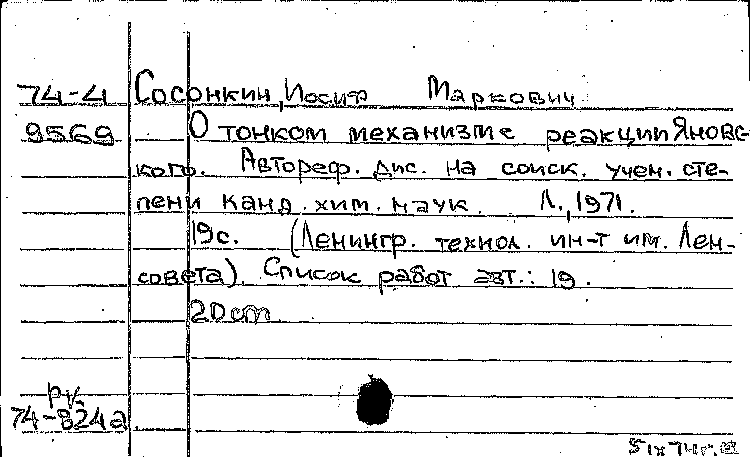 74-4 Сосонкин, Иосиф Маркович
9569 О тонком механизме реакции Яновс-
кого. Автореф. дис. на соиск. учен. сте-
пени канд. хим. наук. Л., 1971.
19с. (Ленингр. технол. ин-т им. Лен-
совета). Список работ авт.: 19.
20cm
ру.
74-824а